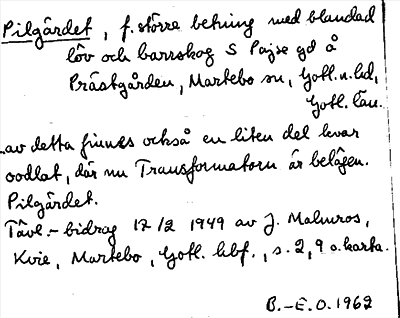 Pilgärdet, f. större betning med blandad
löv och barrskog S Pajse gd å
Prästgården, Martebo sn, Gotl. n. hd,
Gotl. län.
..av detta finnes också en liten del kvar
oodlat, där nu Transformatorn är belägen.
Pilgärdet.
Tävl.-bidrag 17/2 1949 av J. Malmros,
Kvie, Martebo, Gotl. hbf., s. 2, 9 o. karta.
B.-E.O. 1962